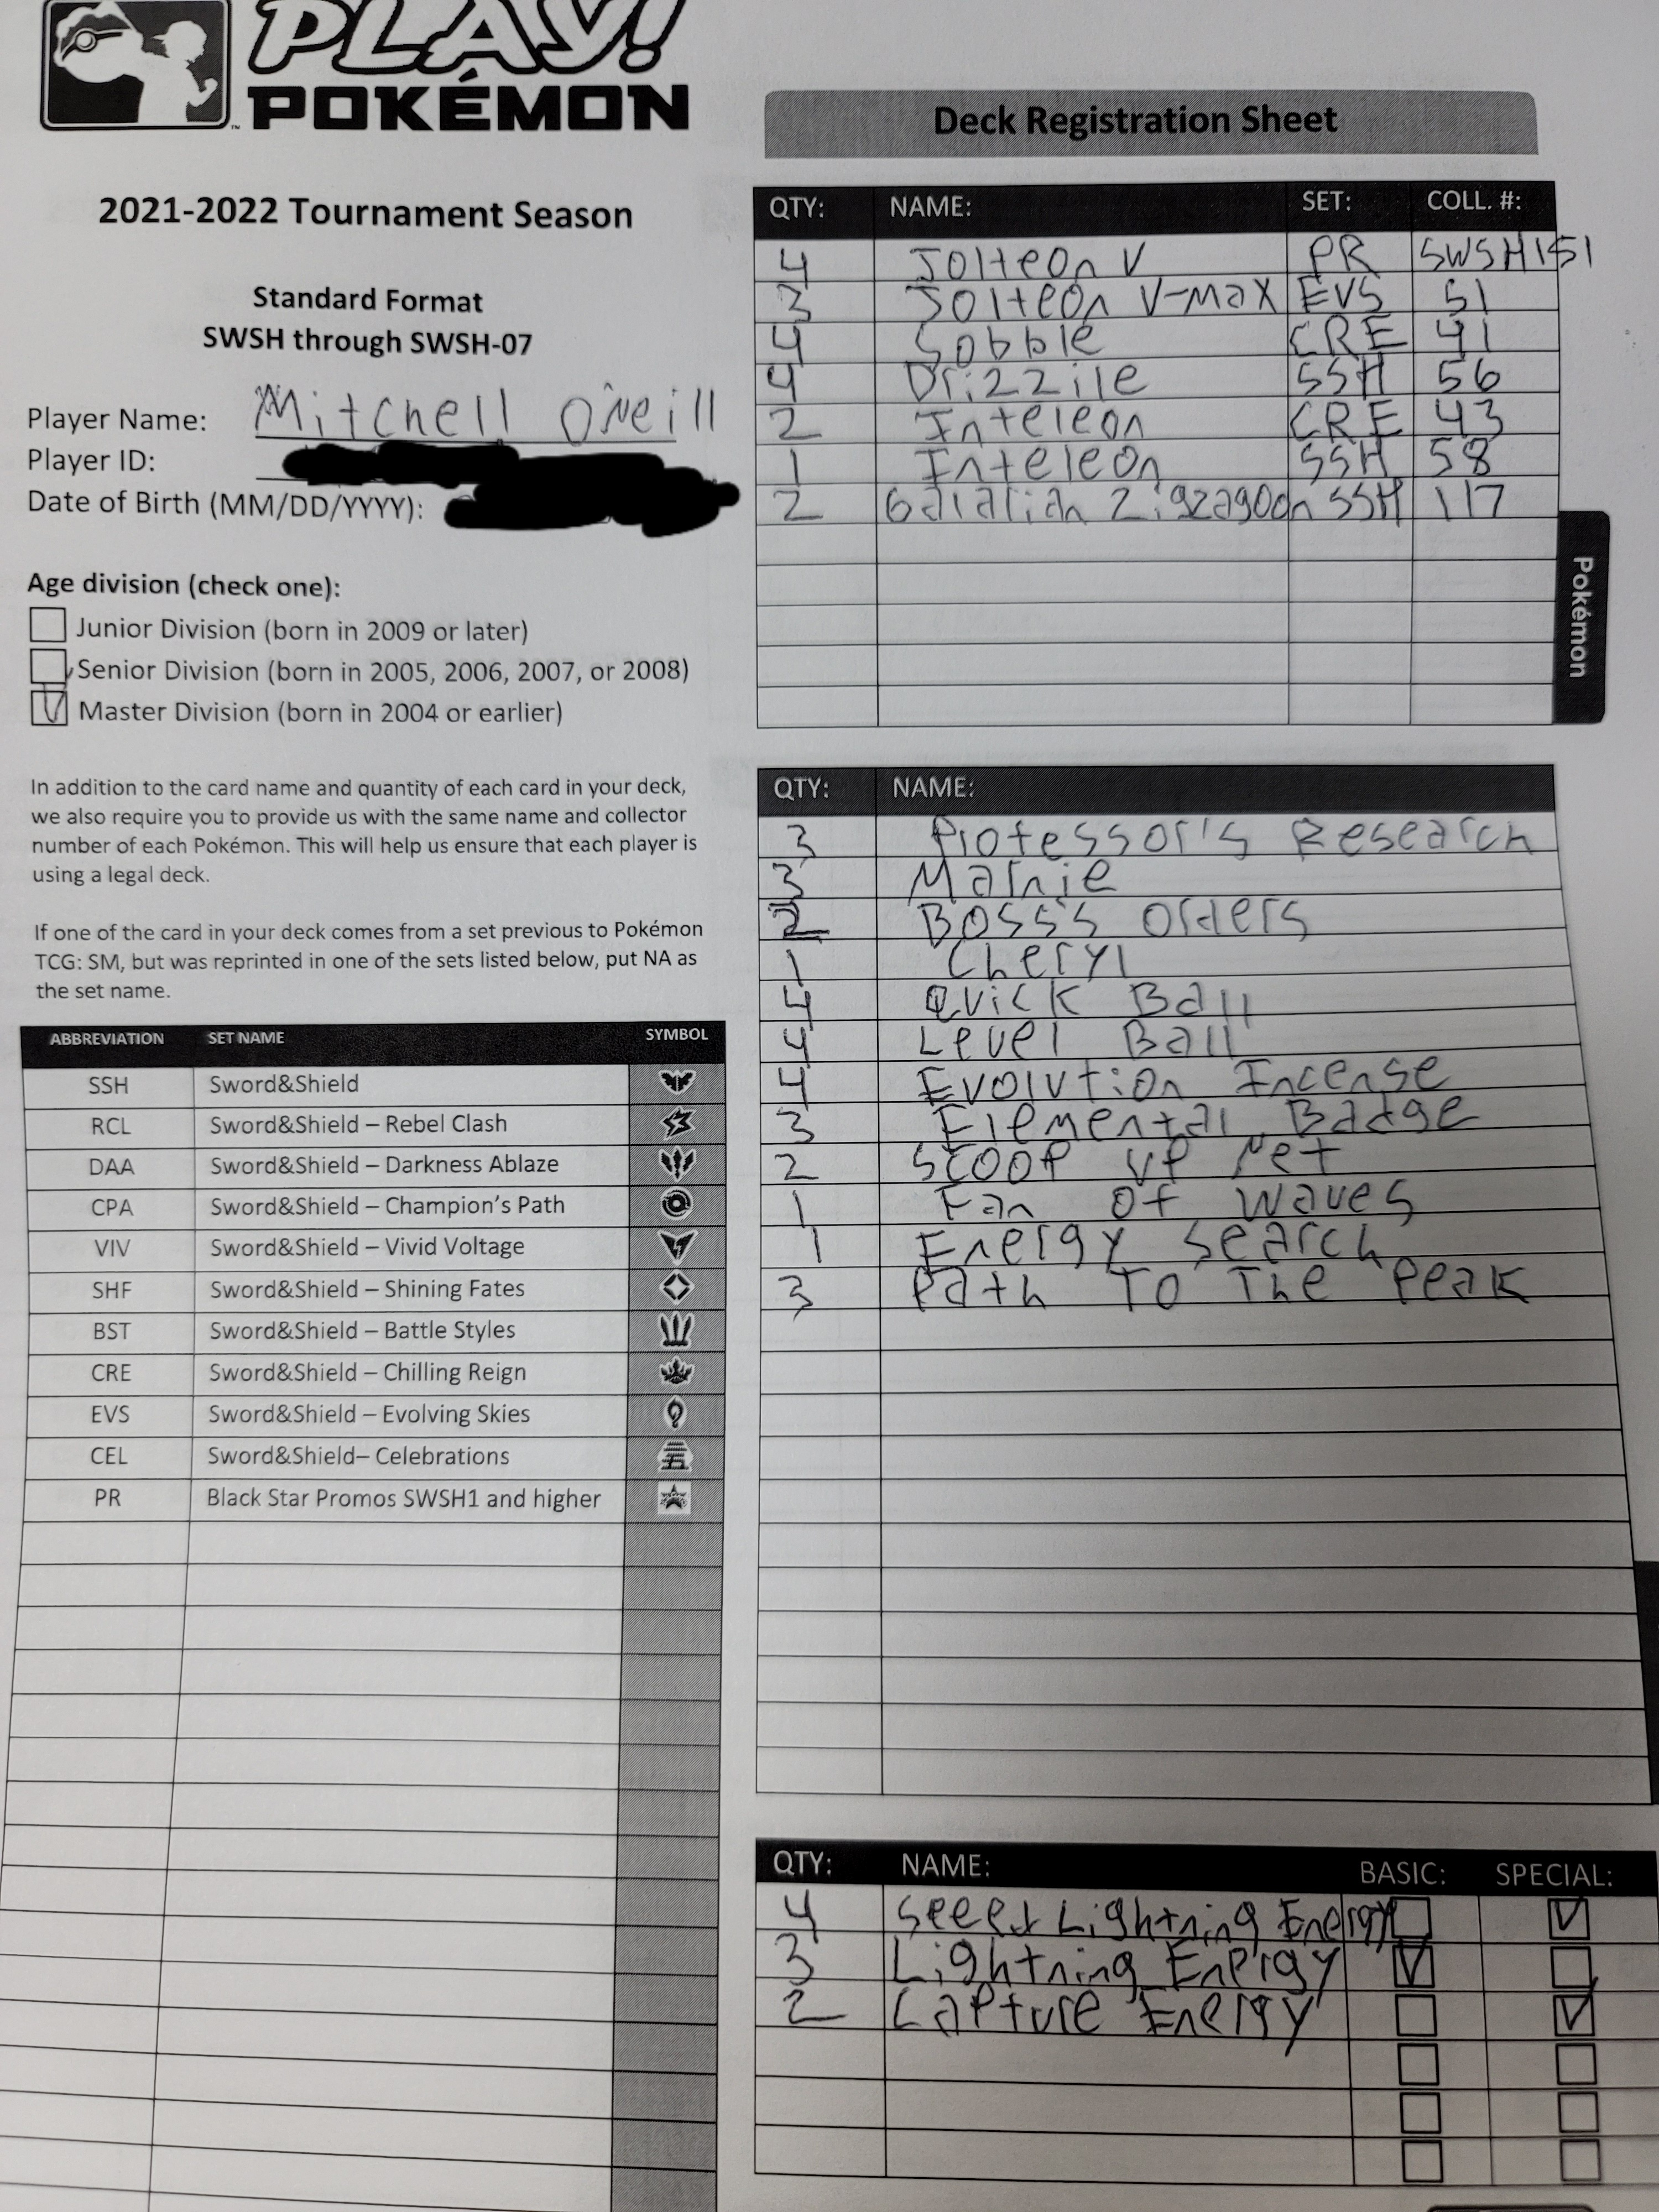 PLAY!
POKÉMON
™
2021-2022 Tournament Season
Standard Format
SWSH through SWSH-07
Player Name: Mitchell O'Neill
Player ID:
Date of Birth (MM/DD/YYYY):
Age division (check one):
Junior Division (born in 2009 or later)
Senior Division (born in 2005, 2006, 2007, or 2008)
Master Division (born in 2004 or earlier)
In addition to the card name and quantity of each card in your deck,
we also require you to provide us with the same name and collector
number of each Pokémon. This will help us ensure that each player is
using a legal deck.
If one of the card in your deck comes from a set previous to Pokémon
TCG: SM, but was reprinted in one of the sets listed below, put NA as
the set name.
ABBREVIATION SET NAME SYMBOL
SSH Sword&Shield
RCL Sword&Shield – Rebel Clash
DAA Sword&Shield – Darkness Ablaze
CPA Sword&Shield – Champion's Path
VIV Sword&Shield – Vivid Voltage
SHF Sword&Shield – Shining Fates
BST Sword&Shield – Battle Styles
CRE Sword&Shield – Chilling Reign
EVS Sword&Shield – Evolving Skies
CEL Sword&Shield– Celebrations
PR Black Star Promos SWSH1 and higher
Deck Registration Sheet
QTY: NAME: SET: COLL. #:
4 Jolteon V PR SWSH151
3 Jolteon V-max EVS 51
4 Sobble CRE 41
4 Drizzile SSH 56
2 Inteleon CRE 43
1 Inteleon SSH 58
2 Galarian Zigzagoon SSH 117
Pokémon
QTY: NAME:
3 Professor's Research
3 Marnie
2 Boss's Orders
1 Cheryl
4 Quick Ball
4 Level Ball
4 Evolution Incense
3 Elemental Badge
2 Scoop up Net
1 Fan of Waves
1 Energy Search
3 Path To The Peak
QTY: NAME: BASIC: SPECIAL:
4 Speed Lightning Energy
3 Lightning Energy
2 Capture Energy